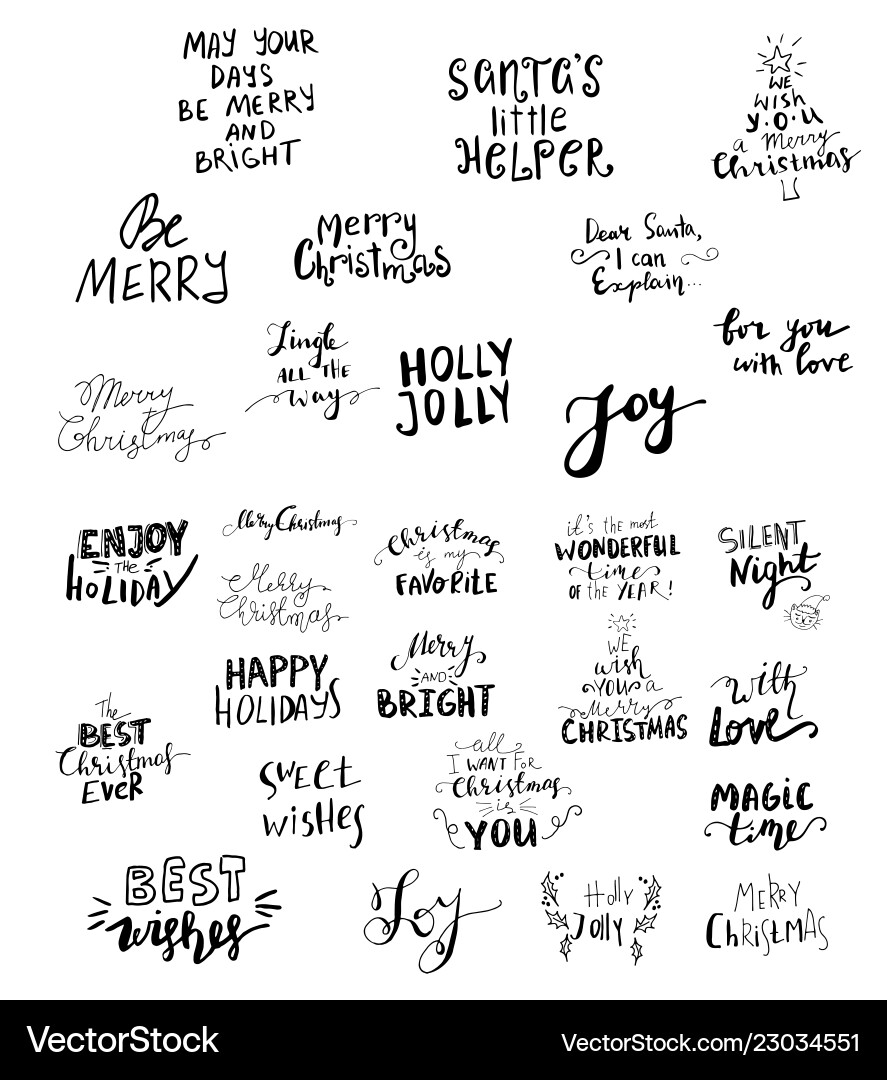 MAY YOUR
DAYS
BE MERRY
AND
BRIGHT
SANTA'S
little
HELPER
WE
wish
y.o.u
a Merry
Christmas
Be
MERRY
Merry
Christmas
Dear Santa,
I can
Explain...
for you
with love
Jingle
ALL THE
way
HOLLY
JOLLY
Joy
Merry
Christmas
ENJOY
THE
HOLIDAY
Merry Christmas
Merry
Christmas
Christmas
is my
FAVORITE
it's the most
WONDERFUL
time
OF the YEAR!
SILENT
Night
HAPPY
HOLIDAYS
Merry
AND
BRIGHT
WE
wish
YOU a
Merry
CHRISTMAS
with
Love
The
BEST
Christmas
EVER
SWEET
wisHes
all
I WANT FOR
Christmas
is
YOU
MAGIC
time
BEST
wishes
Joy
Holly
Jolly
MERRY
CHRISTMAS
VectorStock®
VectorStock.com/23034551